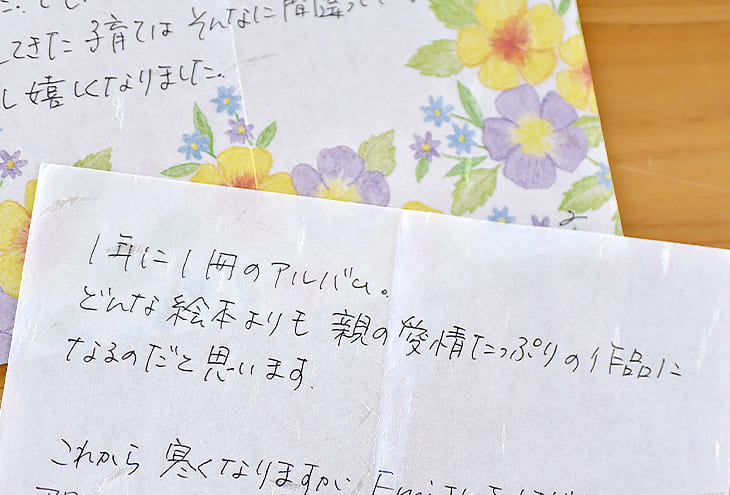 てきた子育ては そんなに間違って
嬉しくなりました。
2
1年に1冊のアルバム。
どんな絵本よりも 親の愛情たっぷりの作品に
なるのだと思います。
これから 寒くなりますが